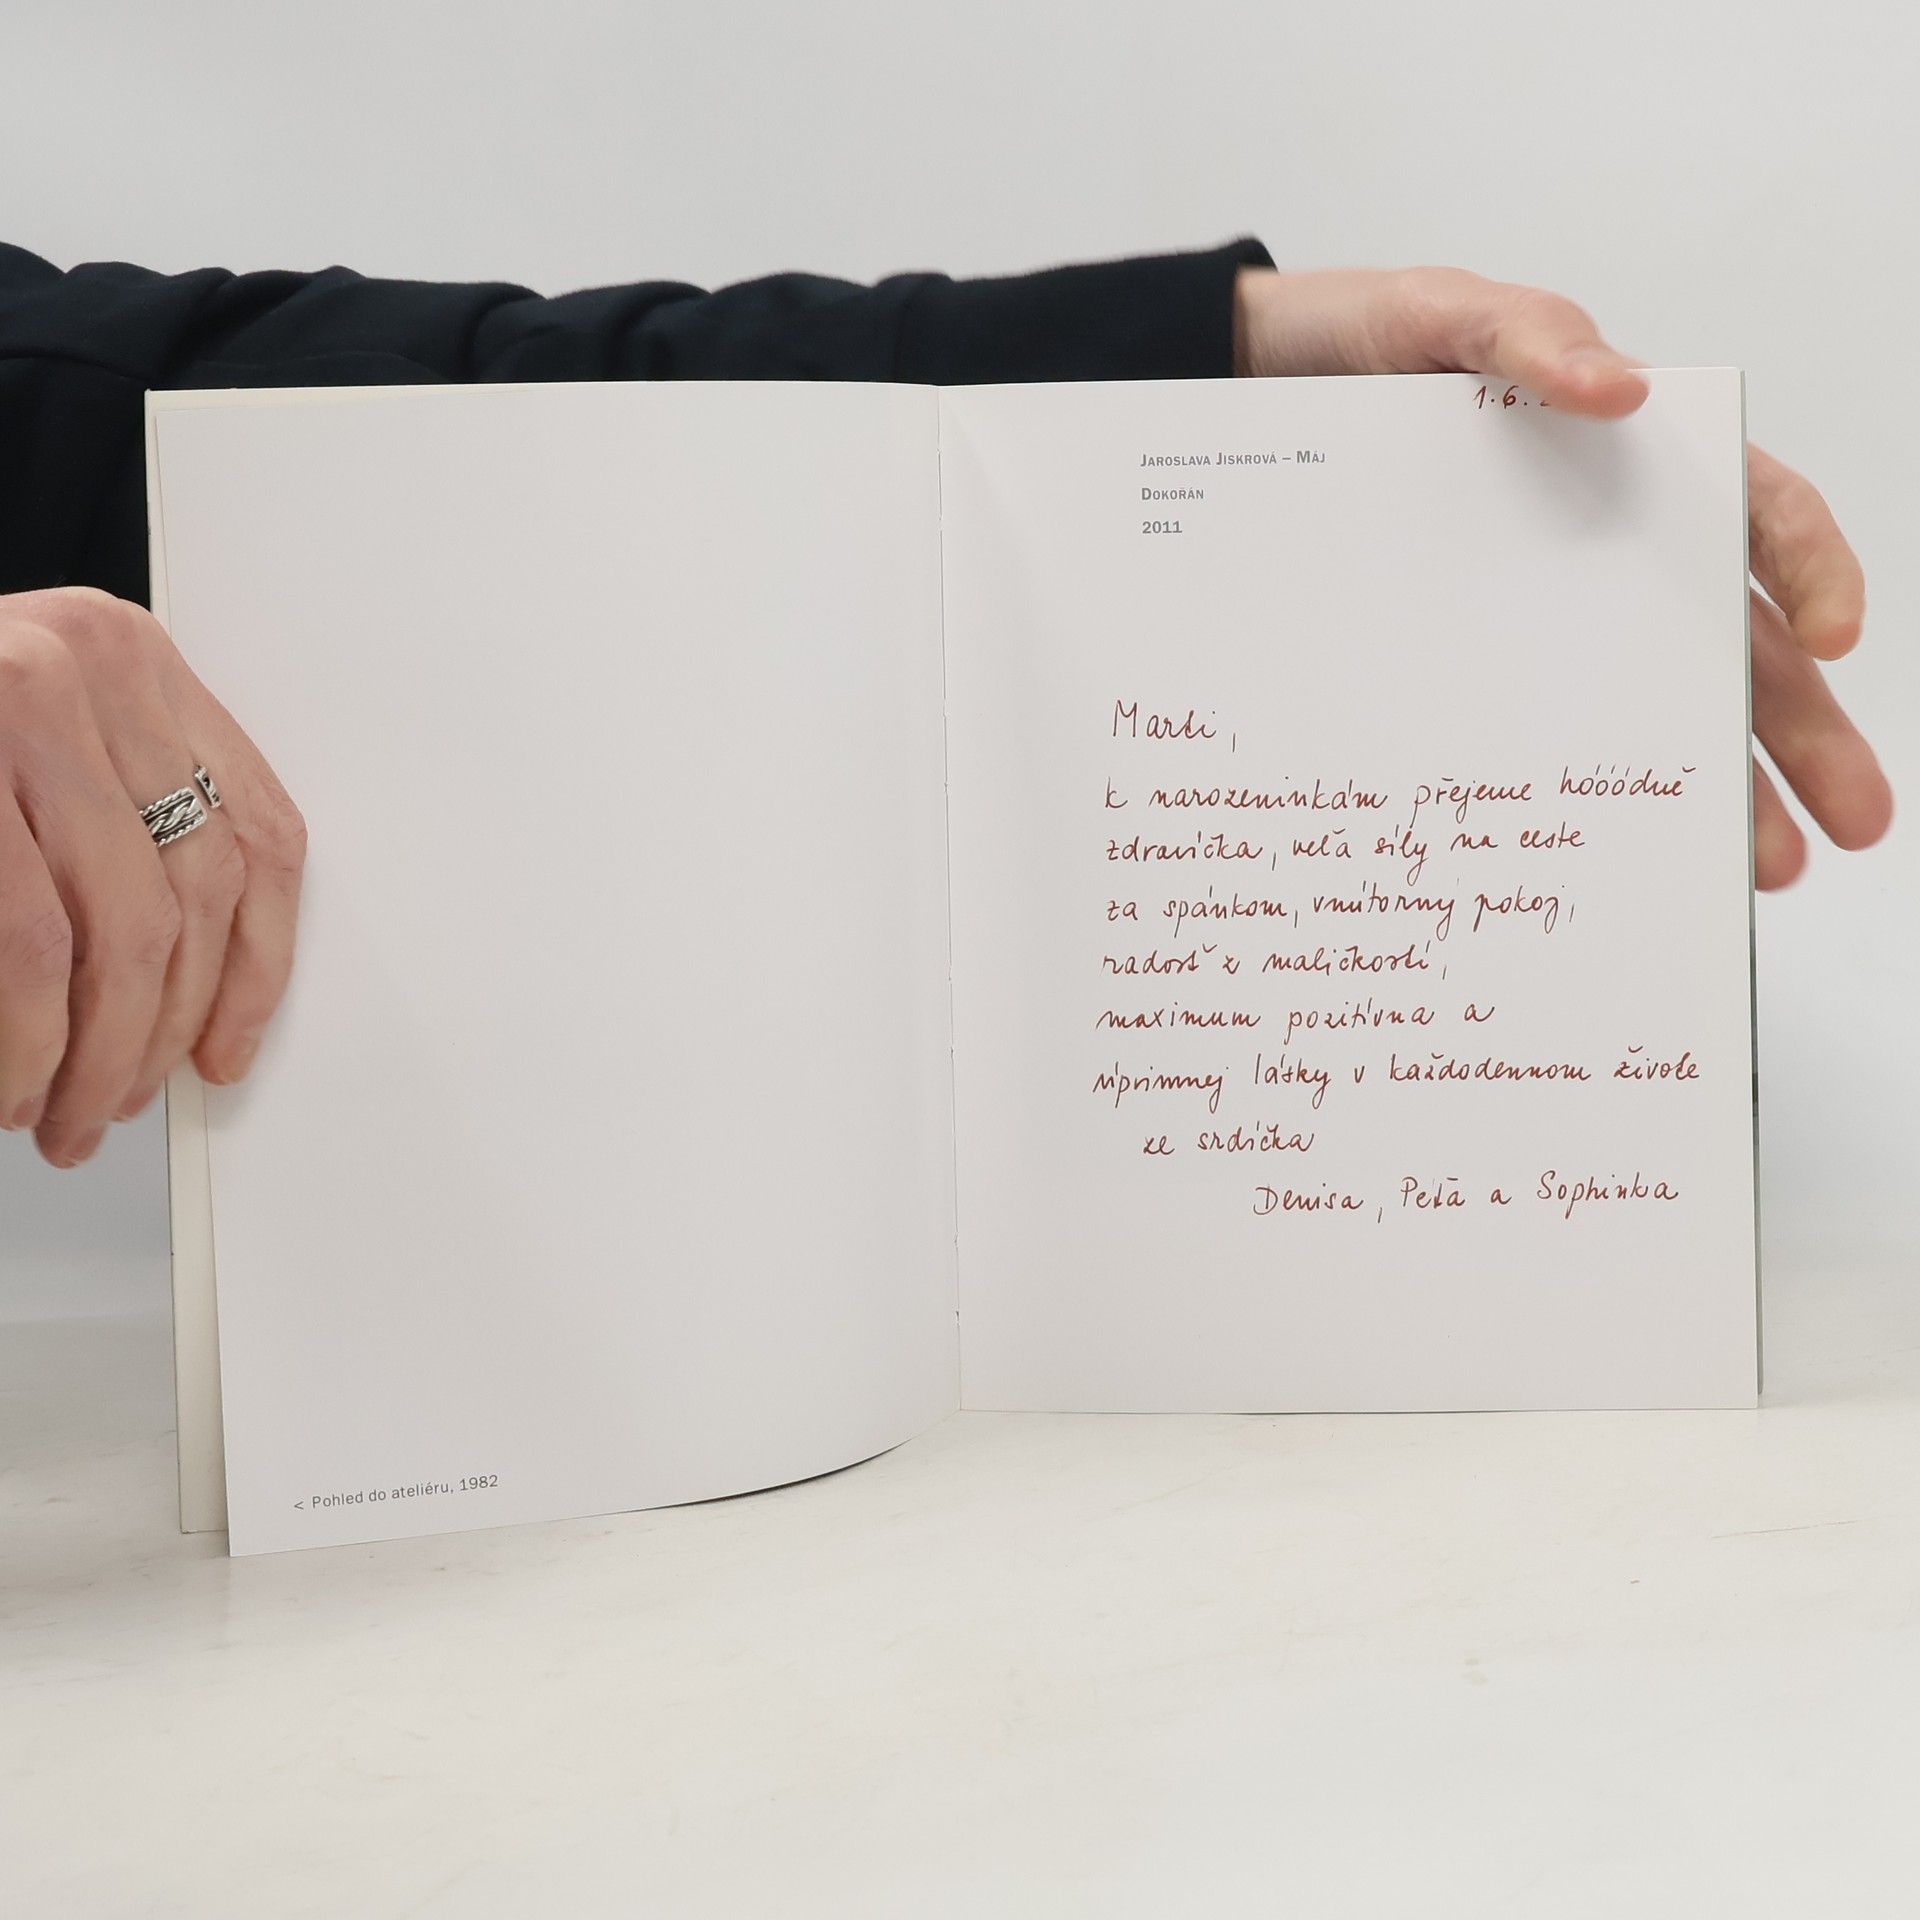 < Pohled do ateliéru, 1982
1.6.
Jaroslava Jiskrová – Máj
Dokořán
2011
Marti,
k narozeninkám přejeme hóóódně
zdravíčka, veľa síly na ceste
za spánkom, vnútorný pokoj,
radosť z maličkostí,
maximum pozitívna a
úprimnej lásky v každodennom živote
ze srdíčka
Denisa, Peťa a Sophinka